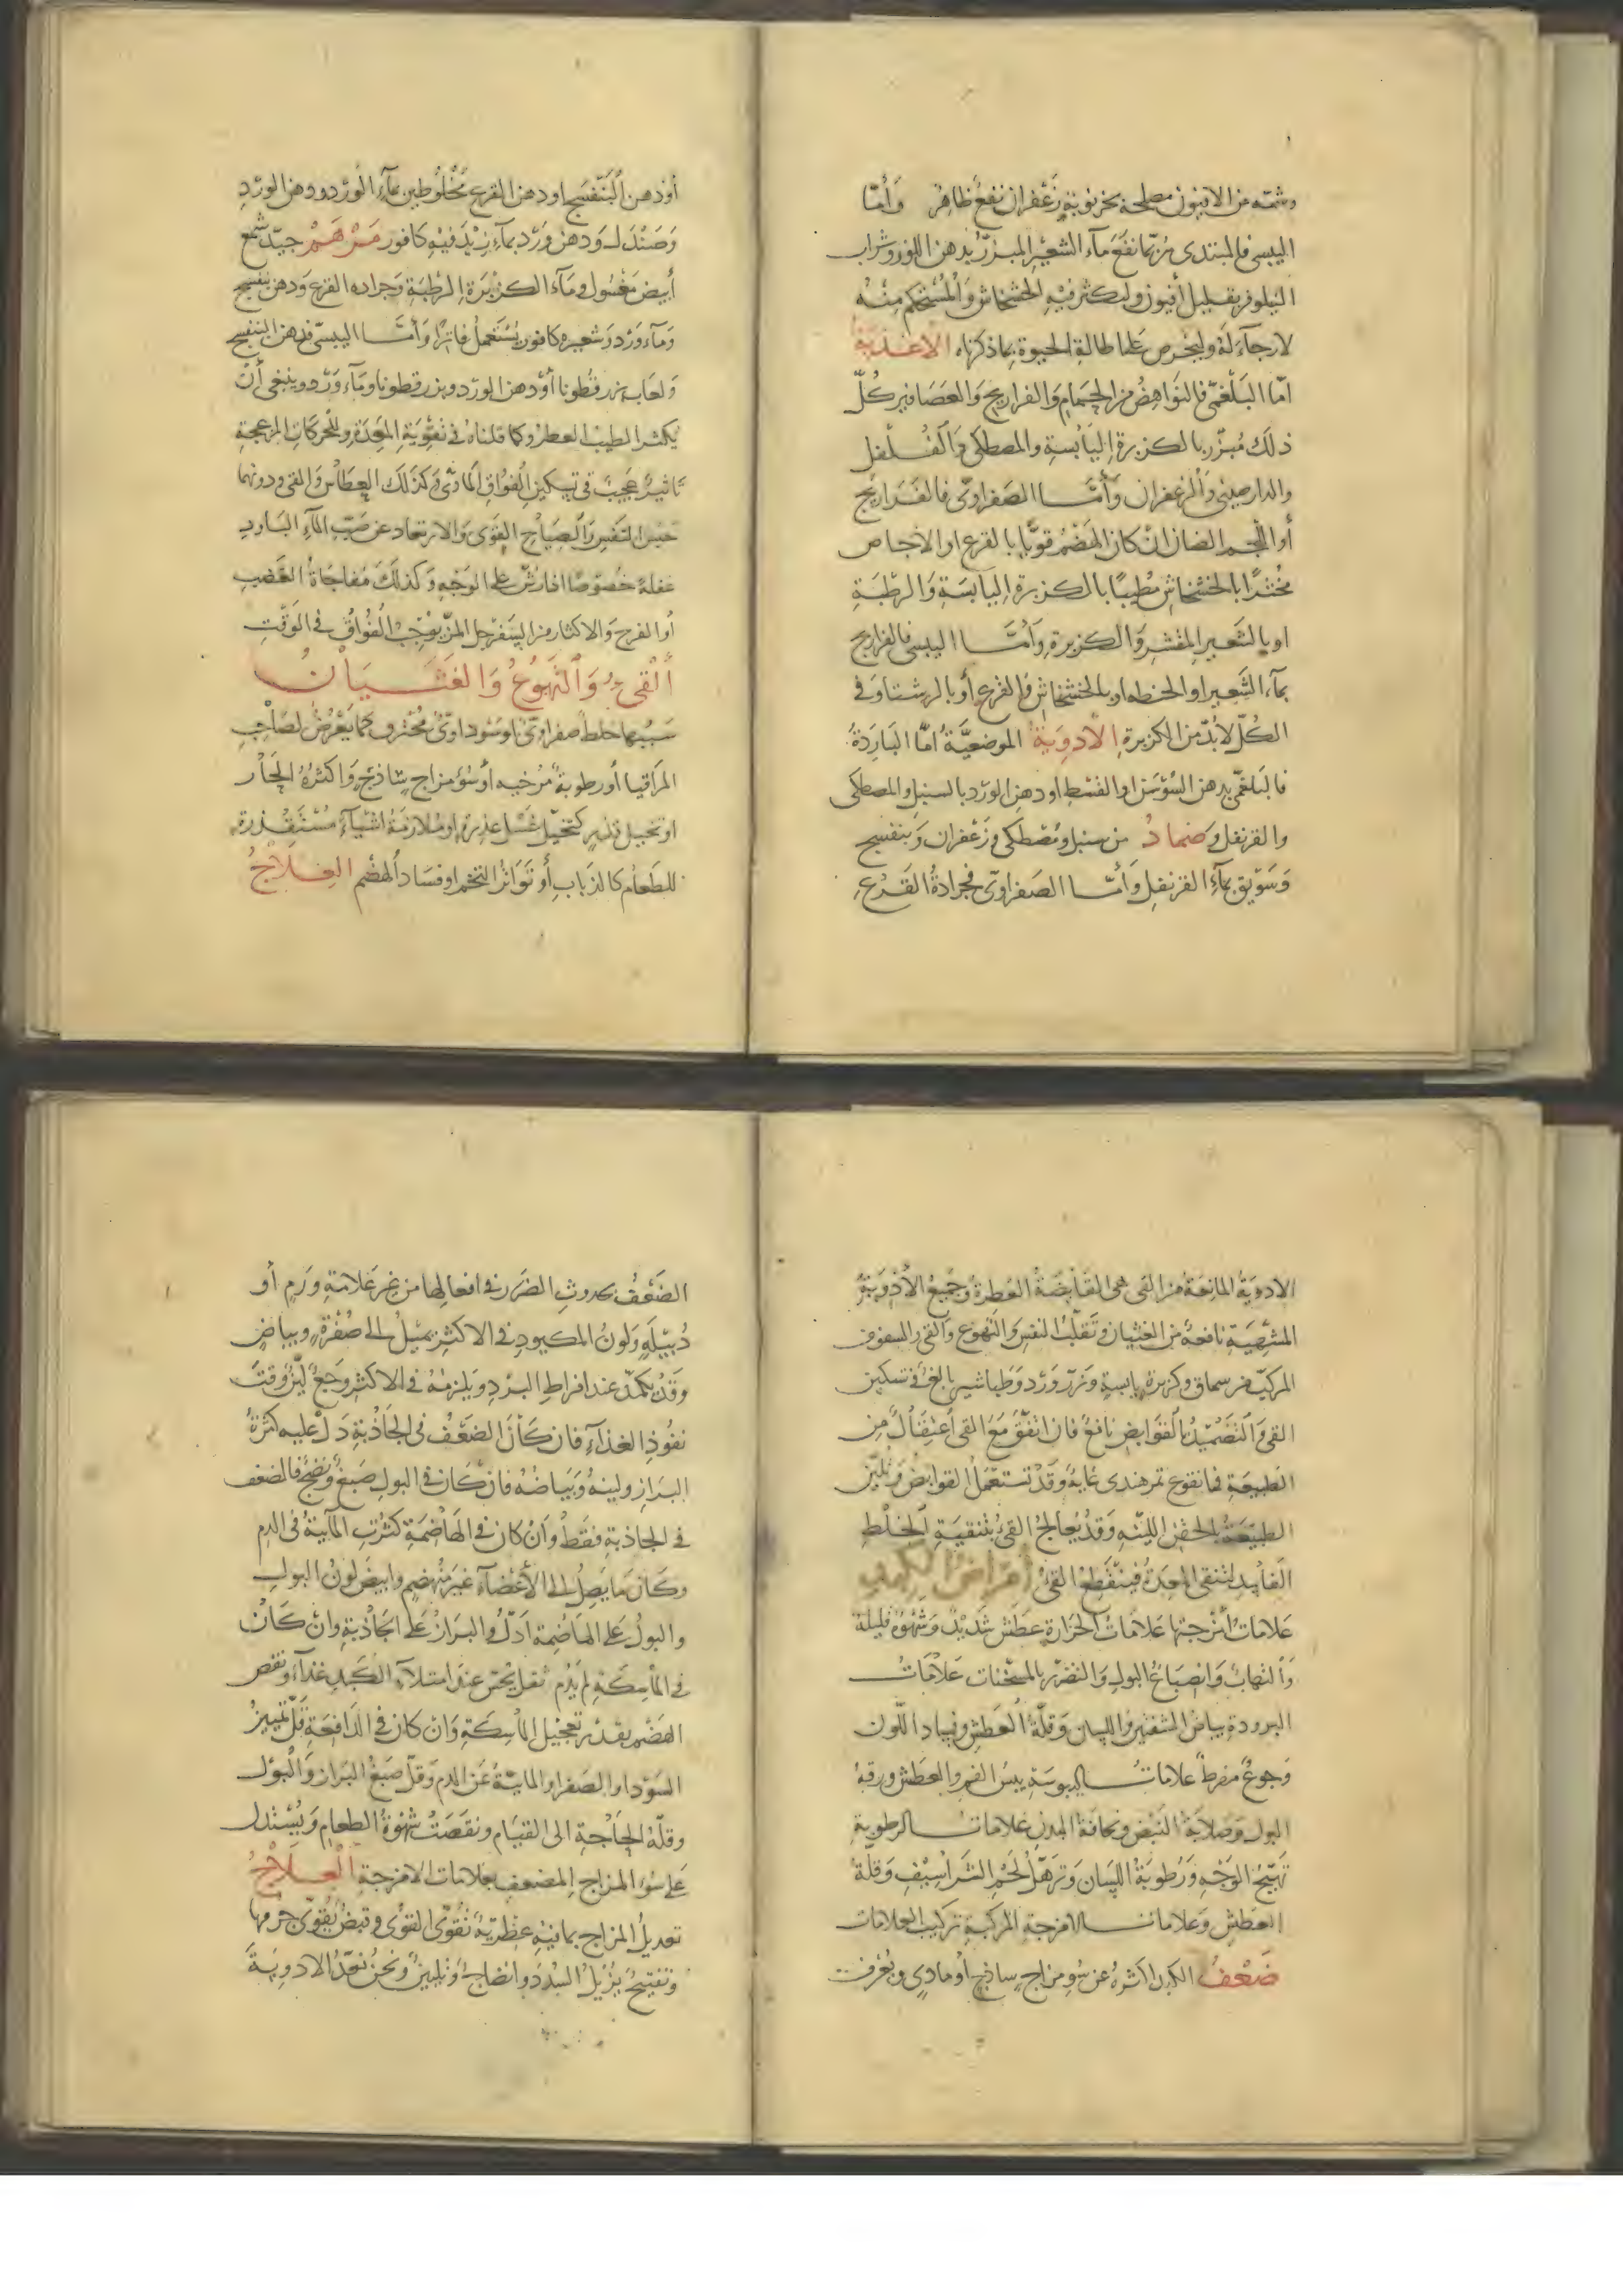 وشمّه من الافيون مصلحة بخرنوبة زعفران نفع ظاهر وأمّا
اليبسى فالمبتدى ربّما نفع مآء الشعير المبزّر بدهن اللوز وشراب
النيلوفر بقليل أفيون وليكثر فيه الخشخاش والمستحكم منه
لارجآء له وليحرص على اطالة الحيوة بما ذكرناه الاغذية
امّا البلغمىّ فالنواهض من الحمام والفراريج والعصافير كلّ
ذلك مبزّر بالكزبرة اليابسة والمصطكى والفلفل
والدارصينى والزعفران وأمّا الصفراوىّ فالفراريج
أو اللحم الضان ان كان الهضم قويّا بالقرع او الاجاص
مخثرا بالخشخاش مطيبا بالكزبرة اليابسة والرطبة
او بالشعير المقشر والكزبرة وأمّا اليبسى فالفراريج
بمآء الشعير او الحنطه او بالخشخاش والقرع أو بالرشتا وفى
الكلّ لابدّ من الكزبرة الادوية الموضعيّة امّا الباردة
فالبلغمى بدهن السوسن او القسط او دهن الورد بالسنبل والمصطكى
والقرنفل وضماد من سنبل ومصطكى وزعفران وبنفسج
وسويق بمآء القرنفل وأمّا الصفراوىّ فجرادة القرع
أو دهن البنفسج او دهن القرع مخلوطين بمآء الورد ودهن الورد
وصندل ودهن ورد بمآء يزيد فيه كافور مرهم جيّد شمع
أبيض مغسول ومآء الكزبرة الرطبة وجراده القرع ودهن بنفسج
ومآء ورد وشعيره كافور يستعمل فاترا وأمّا اليبسىّ فدهن البنفسج
ولعاب بزرقطونا أو دهن الورد وبزرقطونا ومآء ورد وينبغى أن
يكثر الطيب العطر وكما قلناه فى تقوية المعدة وللحركات المزعجة
تاثير عجيب فى تسكين الفواق المادىّ وكذلك العطاس والقى ودونهما
حبس النفس والصياح القوى والارتعاد عن صبّ المآء البارد
غفلة خصوصا اذا رشّ على الوجه وكذلك مفاجاة الغضب
أو الفرح والاكثار من السفرجل المزّ يوجب الفواق فى الوقت
القىء والتهوع والغثيان
سببها خلط صفراوىّ او سوداوىّ محترق كما يعرض لصاحب
المراقيا أو رطوبة مرخيه أو سوء مزاج ساذج واكثره الحار
او تخيل قذر كتخيّل غسل عذرة او ملازمة اشيآء مستقذرة
للطعام كالذباب أو تواتر التخم او فساد الهضم العلاج
الادوية المانعة من القى هى القابضة العطرة وجميع الأدوية
المشهية نافعة من الغثيان وتقلّب النفس والتهوع والقى والسفوف
المركب من سماق وكزبرة يابسة وبزر ورد وطباشير بالغ فى تسكين
القى والتضميد بالقوابض نافع فان اتفق مع القى اعتقال من
الطبيعة فانقوع تمرهندى غاية وقد تستعمل القوابض وتليّن
الطبيعة بالحقن اللينه وقد يعالج القىء بتنقية الخلط
الفاسد لتنقى المعدة فينقطع القىء أمراض الكبد
علامات أمزجتها علامات الحرارة عطش شديد وشهوة قليلة
والتهاب وانصباغ البول والتضرّر بالمسخنات علامات
البرودة بياض الشفتين واللسان وقلّة العطش وفساد اللون
وجوع مفرط علامات اليبوسة يبس الفم والعطش ورقة
البول وصلابة النبض ونحافة البدن علامات الرطوبة
تهيّج الوجه ورطوبة اللسان وترهّل لحم الشراسيف وقلّة
العطش وعلامات الامزجة المركبة تركيب العلامات
ضعف الكبد اكثره عن سوء مزاج ساذج أو مادى ويعرف
الضعف بحدوث الضرر فى افعالها من غير علامة ورم أو
دبيلة ولون المكبود فى الاكثر يميل الى صفرة وبياض
وقد يكمدّ عند افراط البرد ويلزمه فى الاكثر وجع ليّن وقت
نفوذ الغذآء فان كان الضعف فى الجاذبة دلّ عليه كثرة
البراز ولينه وبياضه فان كان فى البول صبغ ونضج فالضعف
فى الجاذبة فقط وان كان فى الهاضمة كثرت المآئية فى الدم
وكان ما يصل الى الأعضآء غير منهضم وابيض لون البول
والبول على الهاضمة ادلّ والبراز على الجاذبة وان كان
فى الماسكة لم يدم ثقل يحسّ عند امتلآء الكبد غذآء ونقص
الهضم بقدر تعجيل الماسكة وان كان فى الدافعة قلّ تمييز
السودا والصفرا والمائية عن الدم وقلّ صبغ البراز والبول
وقلّة الحاجة الى القيام ونقصت شهوة الطعام ويستدل
على سوء المزاج المضعف بعلامات الامزجة العلاج
تعديل المزاج بما فيه عطريّة تقوّى القوى وقبض يقوّى جرمها
وتفتيح يزيل السدد وانضاج وتليين ونحن نعدّ الادوية